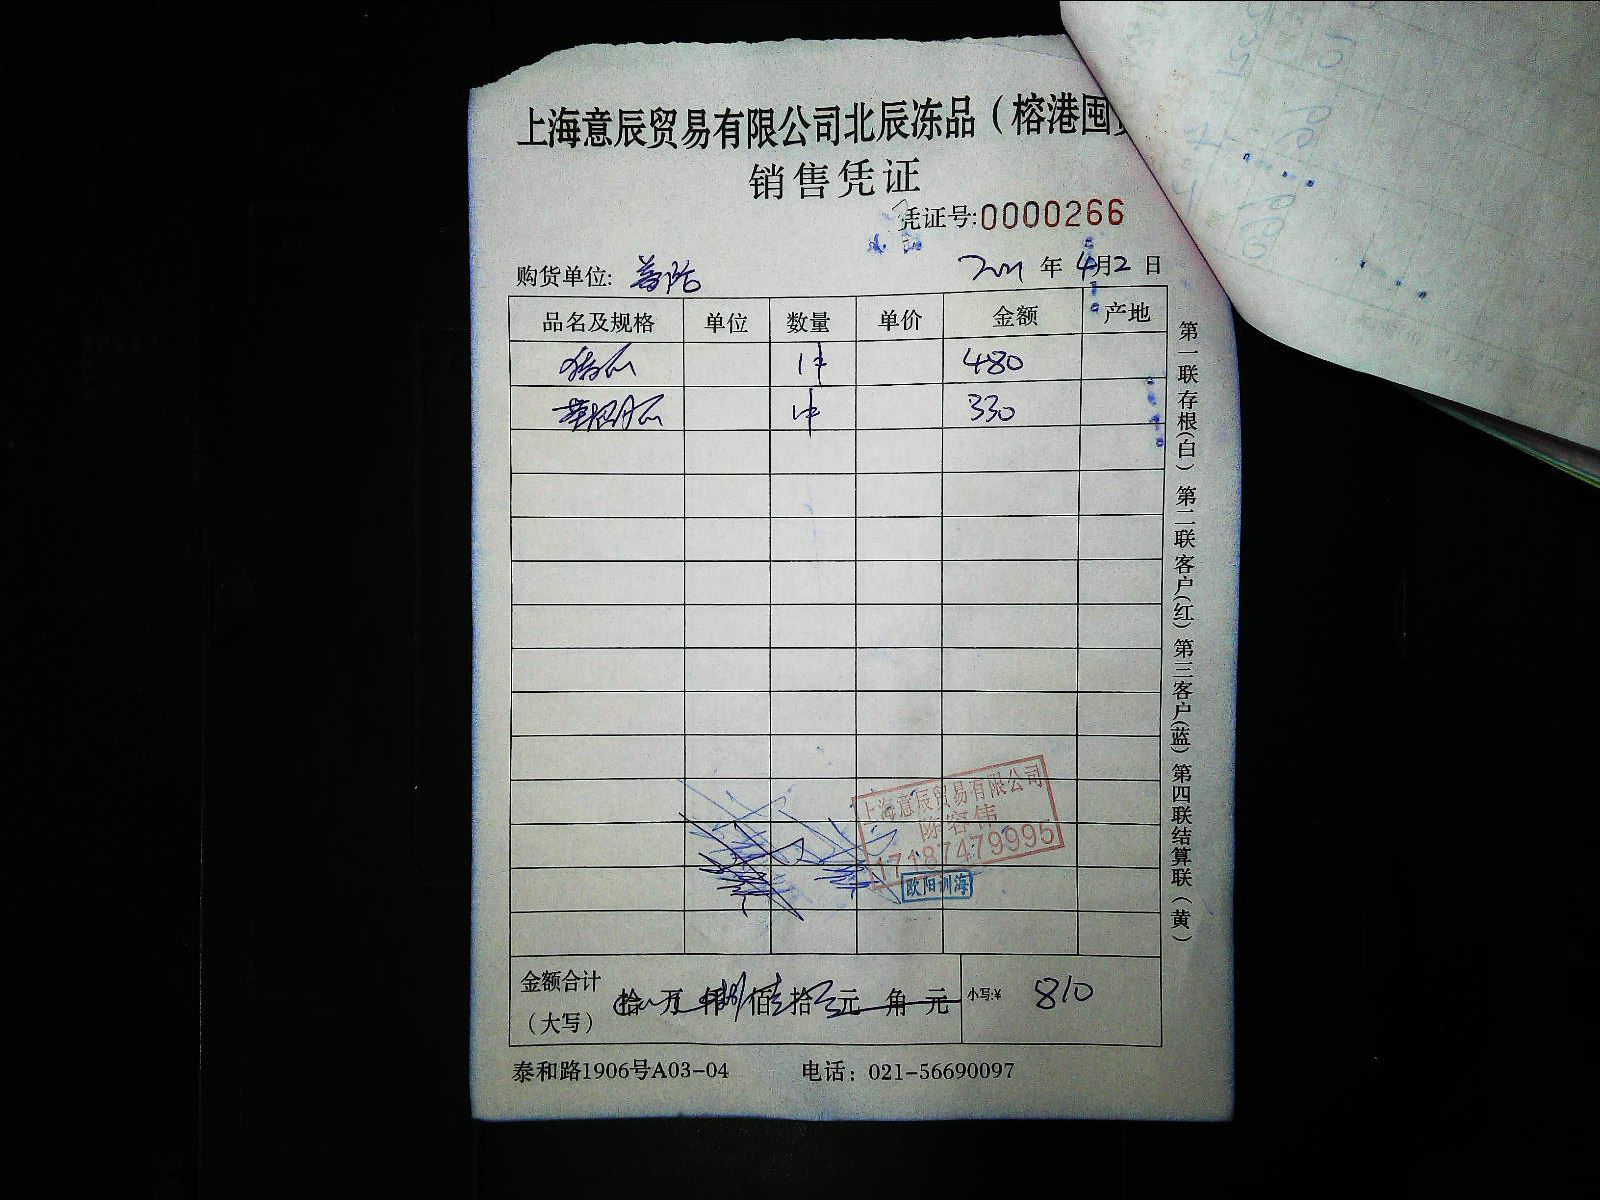 上海意辰贸易有限公司北辰冻品（榕港囤
销售凭证
凭证号:0000266
购货单位:
2021 年 4月2 日
品名及规格 单位 数量 单价 金额 产地
1件 480
1件 330
第一联存根(白) 第二联客户(红) 第三客户(蓝) 第四联结算联(黄)
上海意辰贸易有限公司
陈容伟
17187479995
欧阳训海
金额合计
（大写） 拾 万 仟 捌 佰 壹 拾 元 角 元 小写:¥ 810
泰和路1906号A03-04 电话：021-56690097